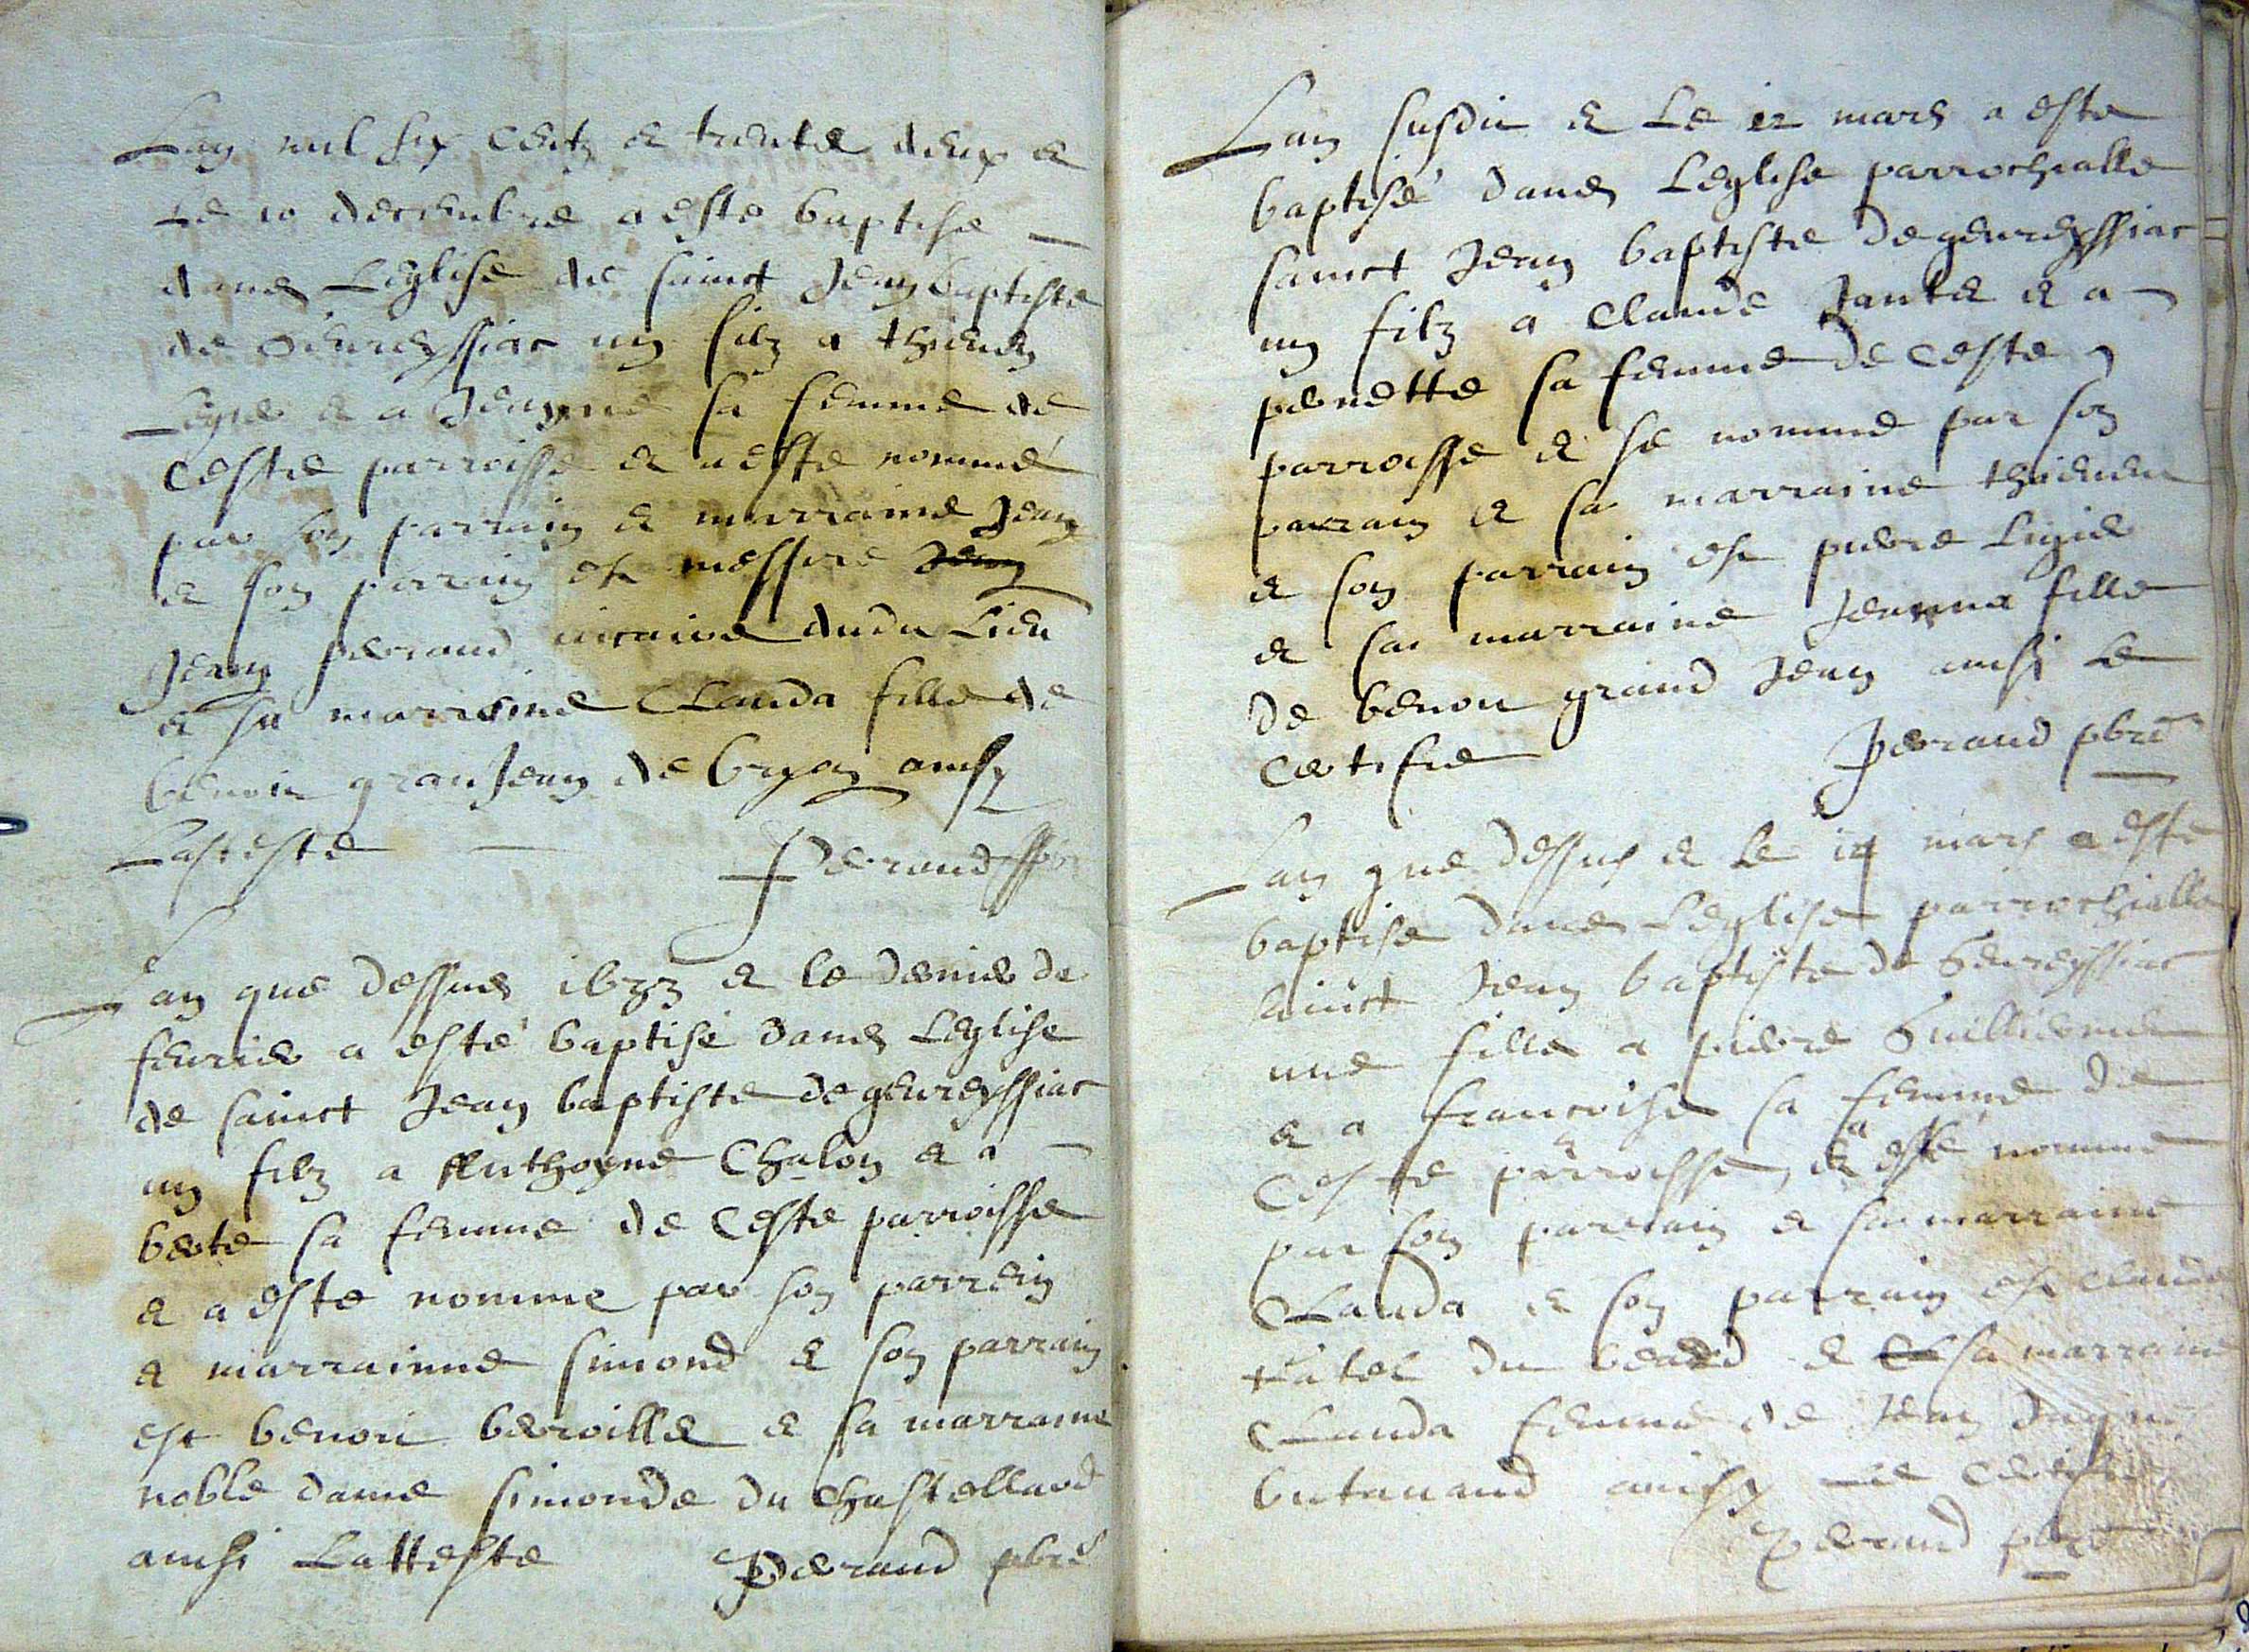 Lan mil six centz et trente deux et
Le 10 decembre a este baptise
dans Leglise de sainct Jean baptiste
de Geureyssiac un filz a thienen
Ligie et a Jeanne sa femme de
ceste parroisse et a este nommé
par son parrain et marraine Jean
et son parrain est messire Jean
Jean perraud vicaire dudit Lieu
et sa marreine Clauda fille de
benoit granJean de bryon ainsy
Lasteste
Perraud
Lan que dessus 1633 et le dernier de
feurier a esté baptisé dans Leglise
de sainct Jean baptiste de geureyssiac
un filz a Anthoyne Chalon et a
berte sa femme de Ceste parroisse
et a este nomme par son parrein
et marrainne simond et son parrain
est benoit beroille et sa marraine
noble dame simonde du Chastellard
ainsi Latteste Perraud pbre
Lan susdit et Le 12 mars a este
baptisé dans Leglise parrochialle
sainct Jean baptiste de geureyssiac
un filz a Claude Jante et a
pernette sa femme de Ceste
parroisse et se nomme par son
parrain et sa marraine thienen
et son parrain est pierre Ligier
et sa marraine Jeanna fille
de benoit grand Jean ainsi Le
Certifie Perraud pbre
Lan que dessus et Le 14 mars a este
baptise dans Leglise parrochialle
sainct Jean baptiste de Geureyssiac
une fille a pierre Guillierme
et a francoise sa femme de
Ceste parroisse et a esté nomme
par son parrain et sa marraine
Clauda et son parrain est claude
du et sa marraine
Clauda femme de Jean
butauand ainsy Le Certifie
Perraud pbre